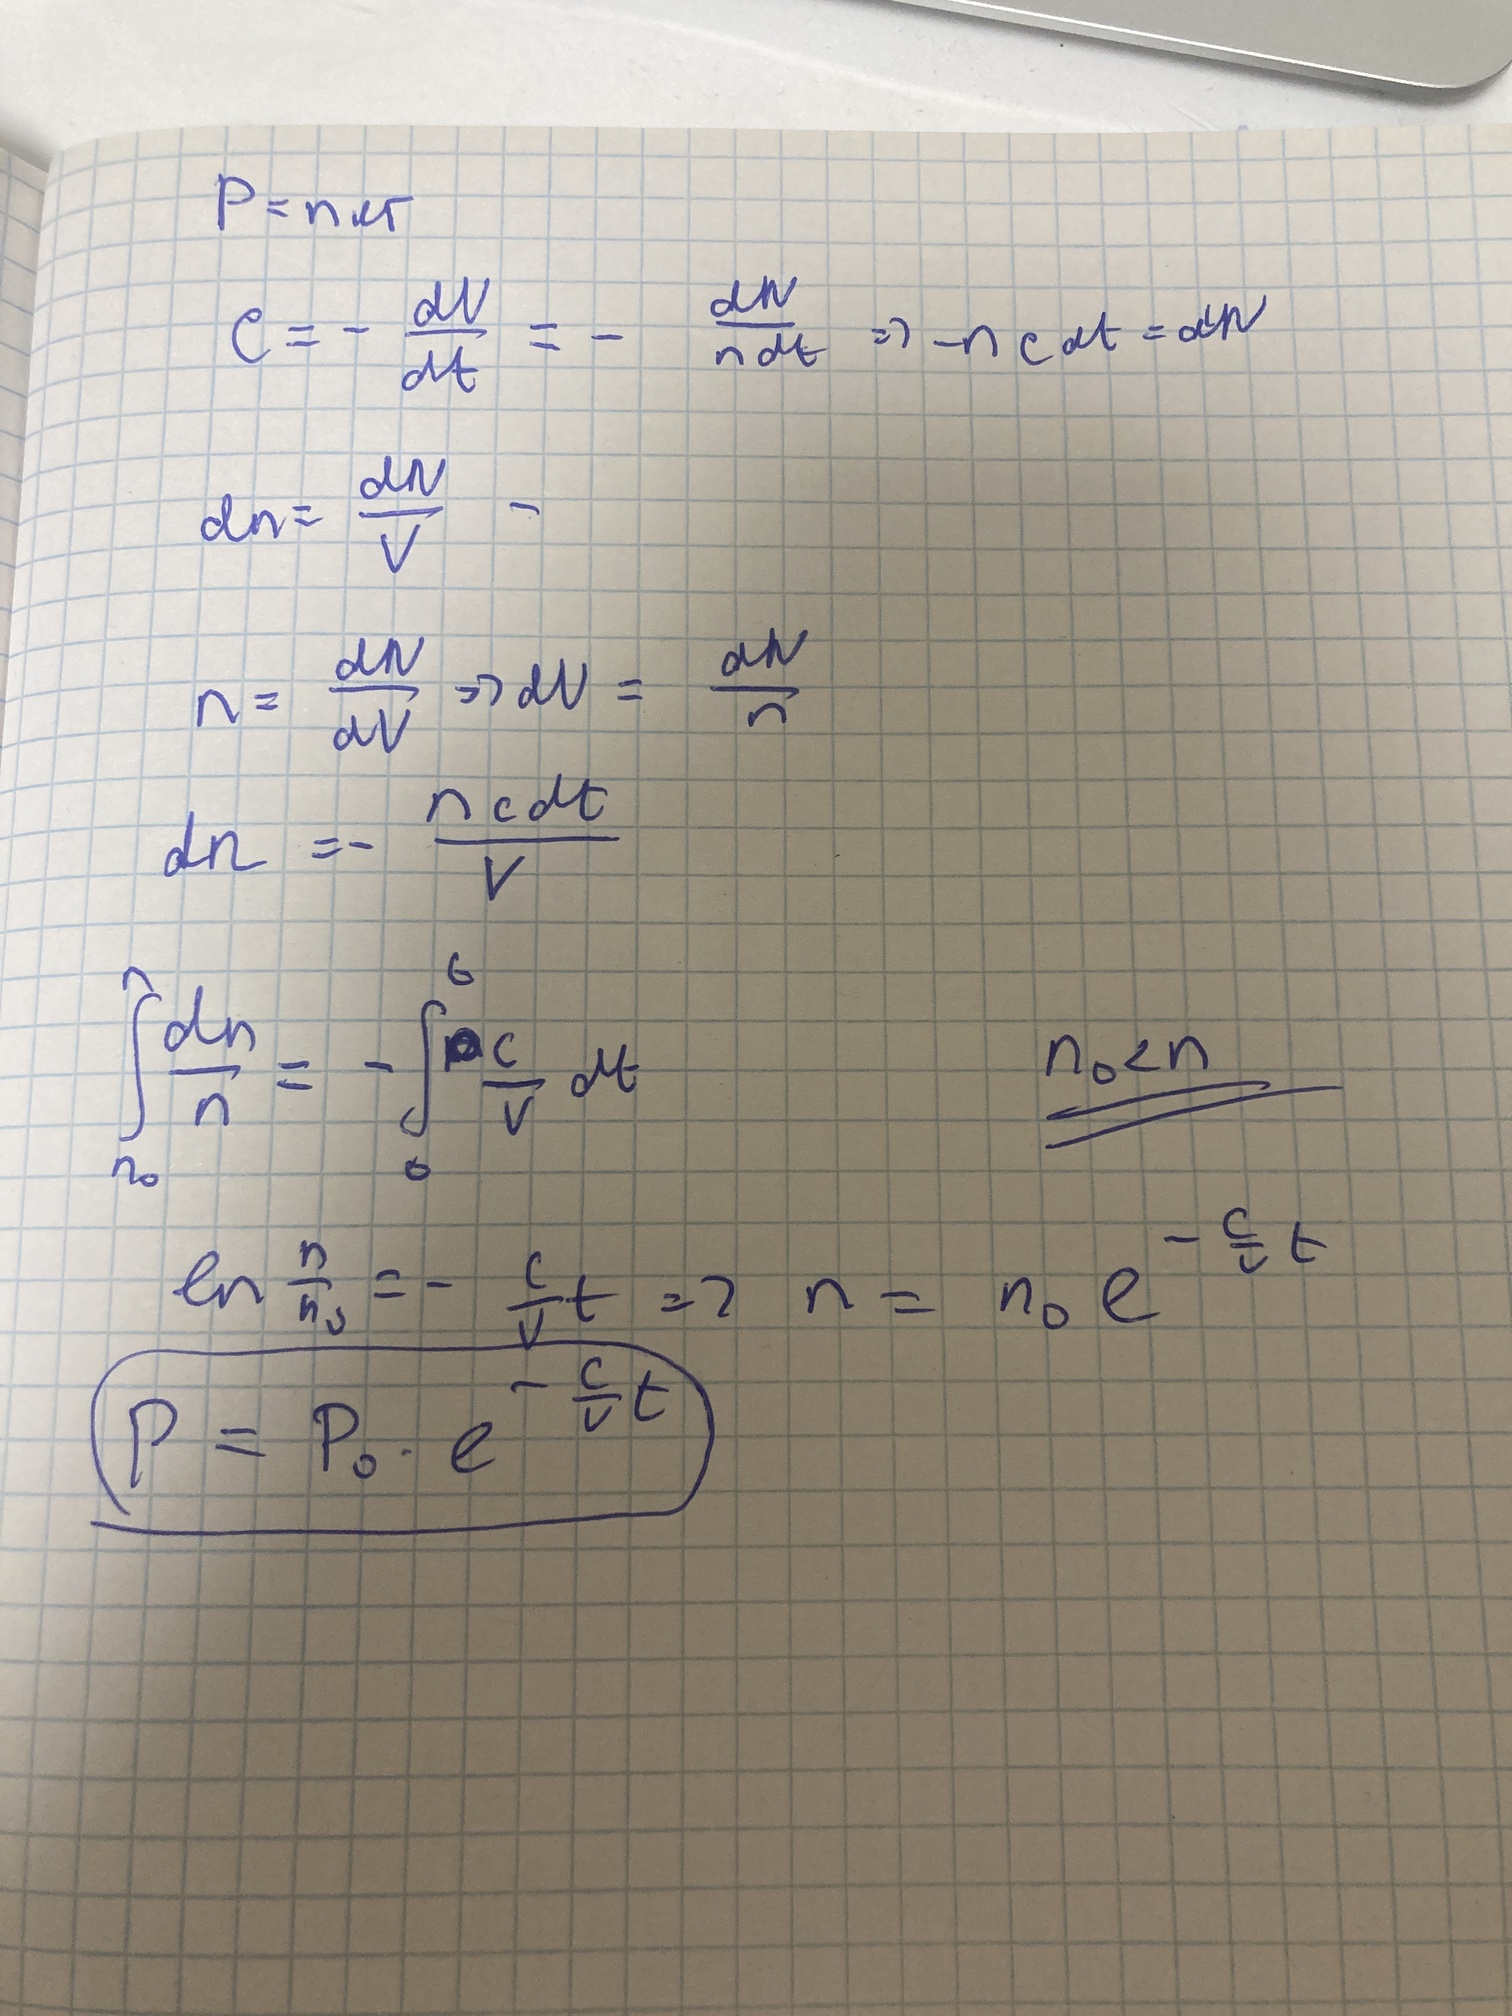 P = nкт
C = - dV/dt = - dN/ndt => -n c dt = dN
dn = dN/V -
n = dN/dV => dV = dN/n
dn = - n c dt/V
∫ₙ₀ⁿ dn/n = - ∫₀ᵗ c/V dt
n₀ < n
ln n/n₀ = - c/V t => n = n₀ e^(- c/V t)
P = P₀ · e^(- c/V t)